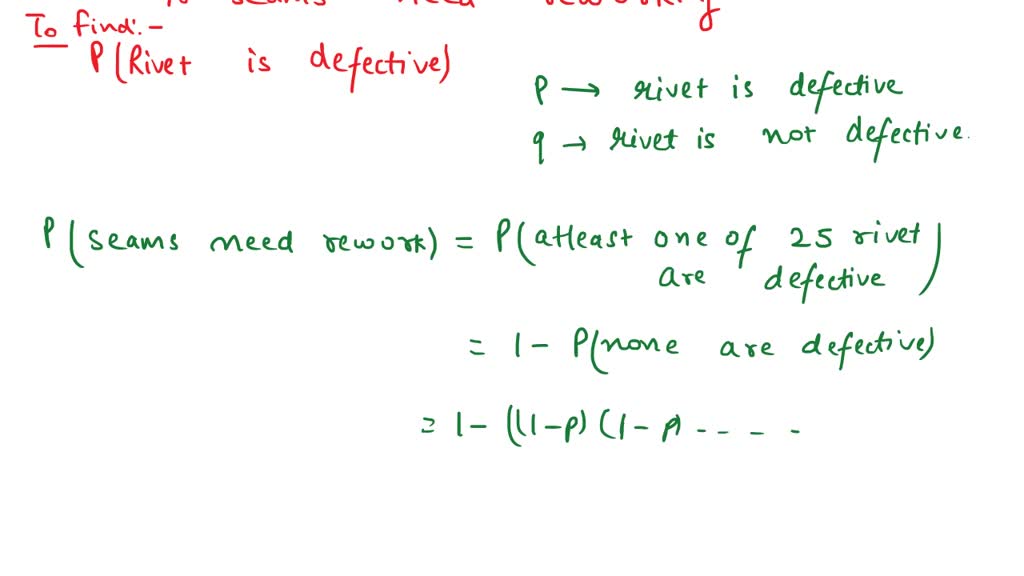 % seams need reworking
To find:-
P(Rivet is defective)
p → rivet is defective
q → rivet is not defective.
P(seams need rework) = P(atleast one of 25 rivet
are defective)
= 1 - P(none are defective)
= 1 - ((1-p) (1-p) - - - -